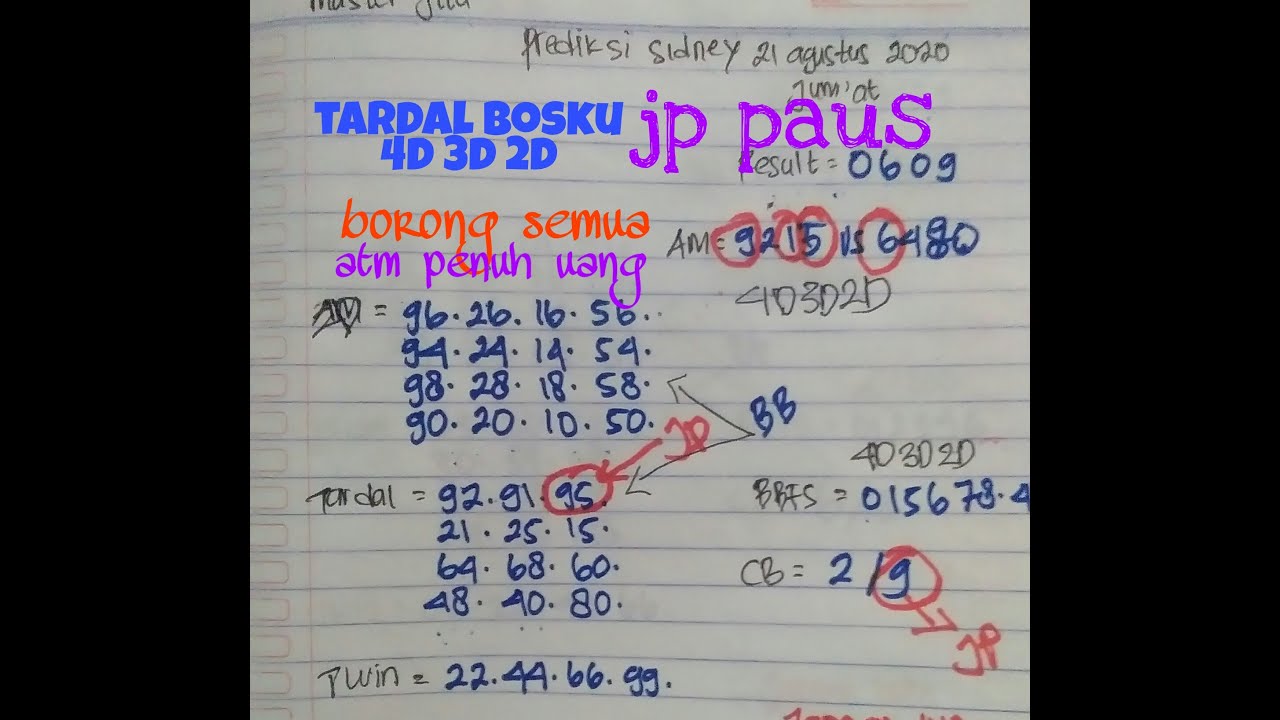 master jitu
prediksi sidney 21 agustus 2020
jum'at
TARDAL BOSKU
4D 3D 2D
jp paus
Result = 0609
borong semua
atm penuh uang
AM = 9215 vs 6480
4D3D2D
= 96. 26. 16. 56.
94. 24. 14. 54.
98. 28. 18. 58.
90. 20. 10. 50.
BB
JP
4D3D2D
Tardal = 92. 91. 95.
21. 25. 15.
64. 68. 60.
48. 40. 80.
BBFS = 015678.4
CB = 2/9
JP
Twin = 22. 44. 66. 99.